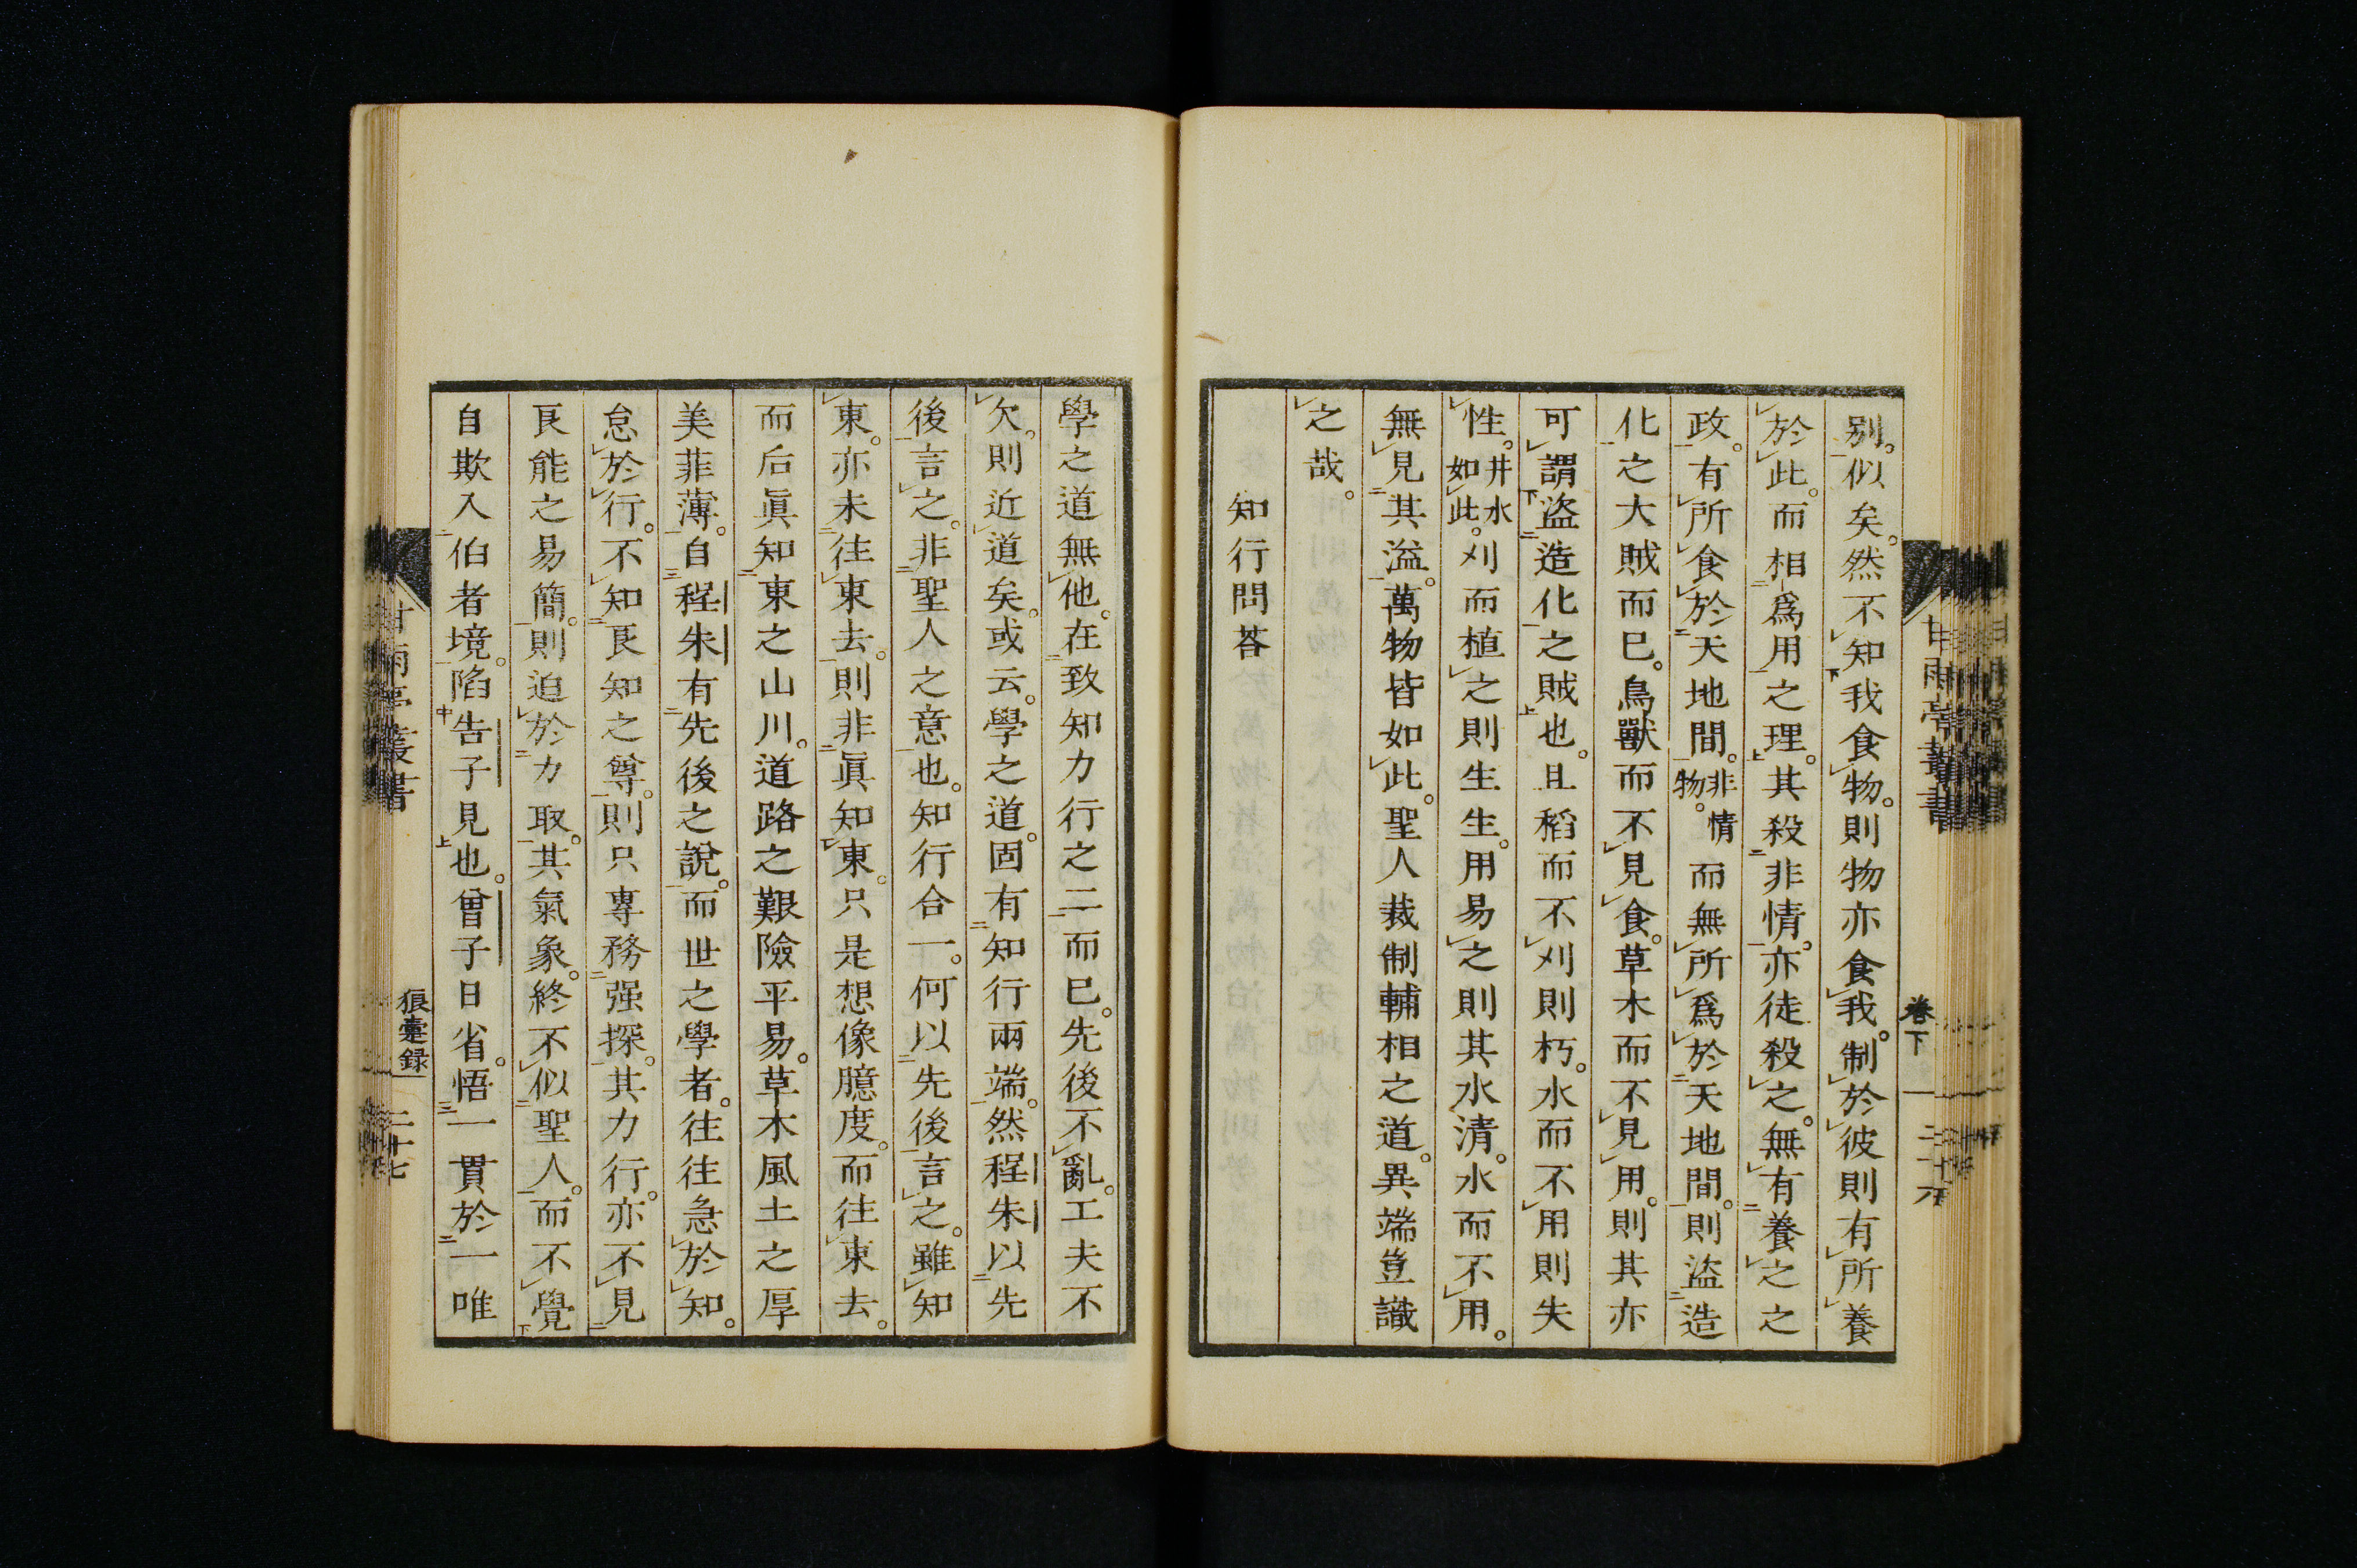 別。似矣。然不知我食物。則物亦食我。制於彼則有所養
於此。而相爲用之理。其殺非情。亦徒殺之。無有養之之
政。有所食於天地間。非情物。而無所爲於天地間。則盜造
化之大賊而已。鳥獸而不見食。草木而不見用。則其亦
可謂盜造化之賊也。且稻而不刈則朽。水而不用則失
性。井水如此。刈而植之則生生。用易之則其水清。水而不用。
無見其溢。萬物皆如此。聖人裁制輔相之道。異端豈識
之哉。
知行問答
學之道無他。在致知力行之二而已。先後不亂。工夫不
欠。則近道矣。或云。學之道。固有知行兩端。然程朱以先
後言之。非聖人之意也。知行合一。何以先後言之。雖知
東。亦未往東去。則非眞知東。只是想像臆度。而往東去。
而后眞知東之山川。道路之艱險平易。草木風土之厚
美菲薄。自程朱有先後之說。而世之學者。往往急於知。
怠於行。不知良知之尊。則只專務强探。其力行。亦不見
良能之易簡。則迫於力取。其氣象。終不似聖人。而不覺
自欺入伯者境。陷告子見也。曾子日省。悟一貫於一唯
卷下
甘雨亭叢書
狼疐録
二十七